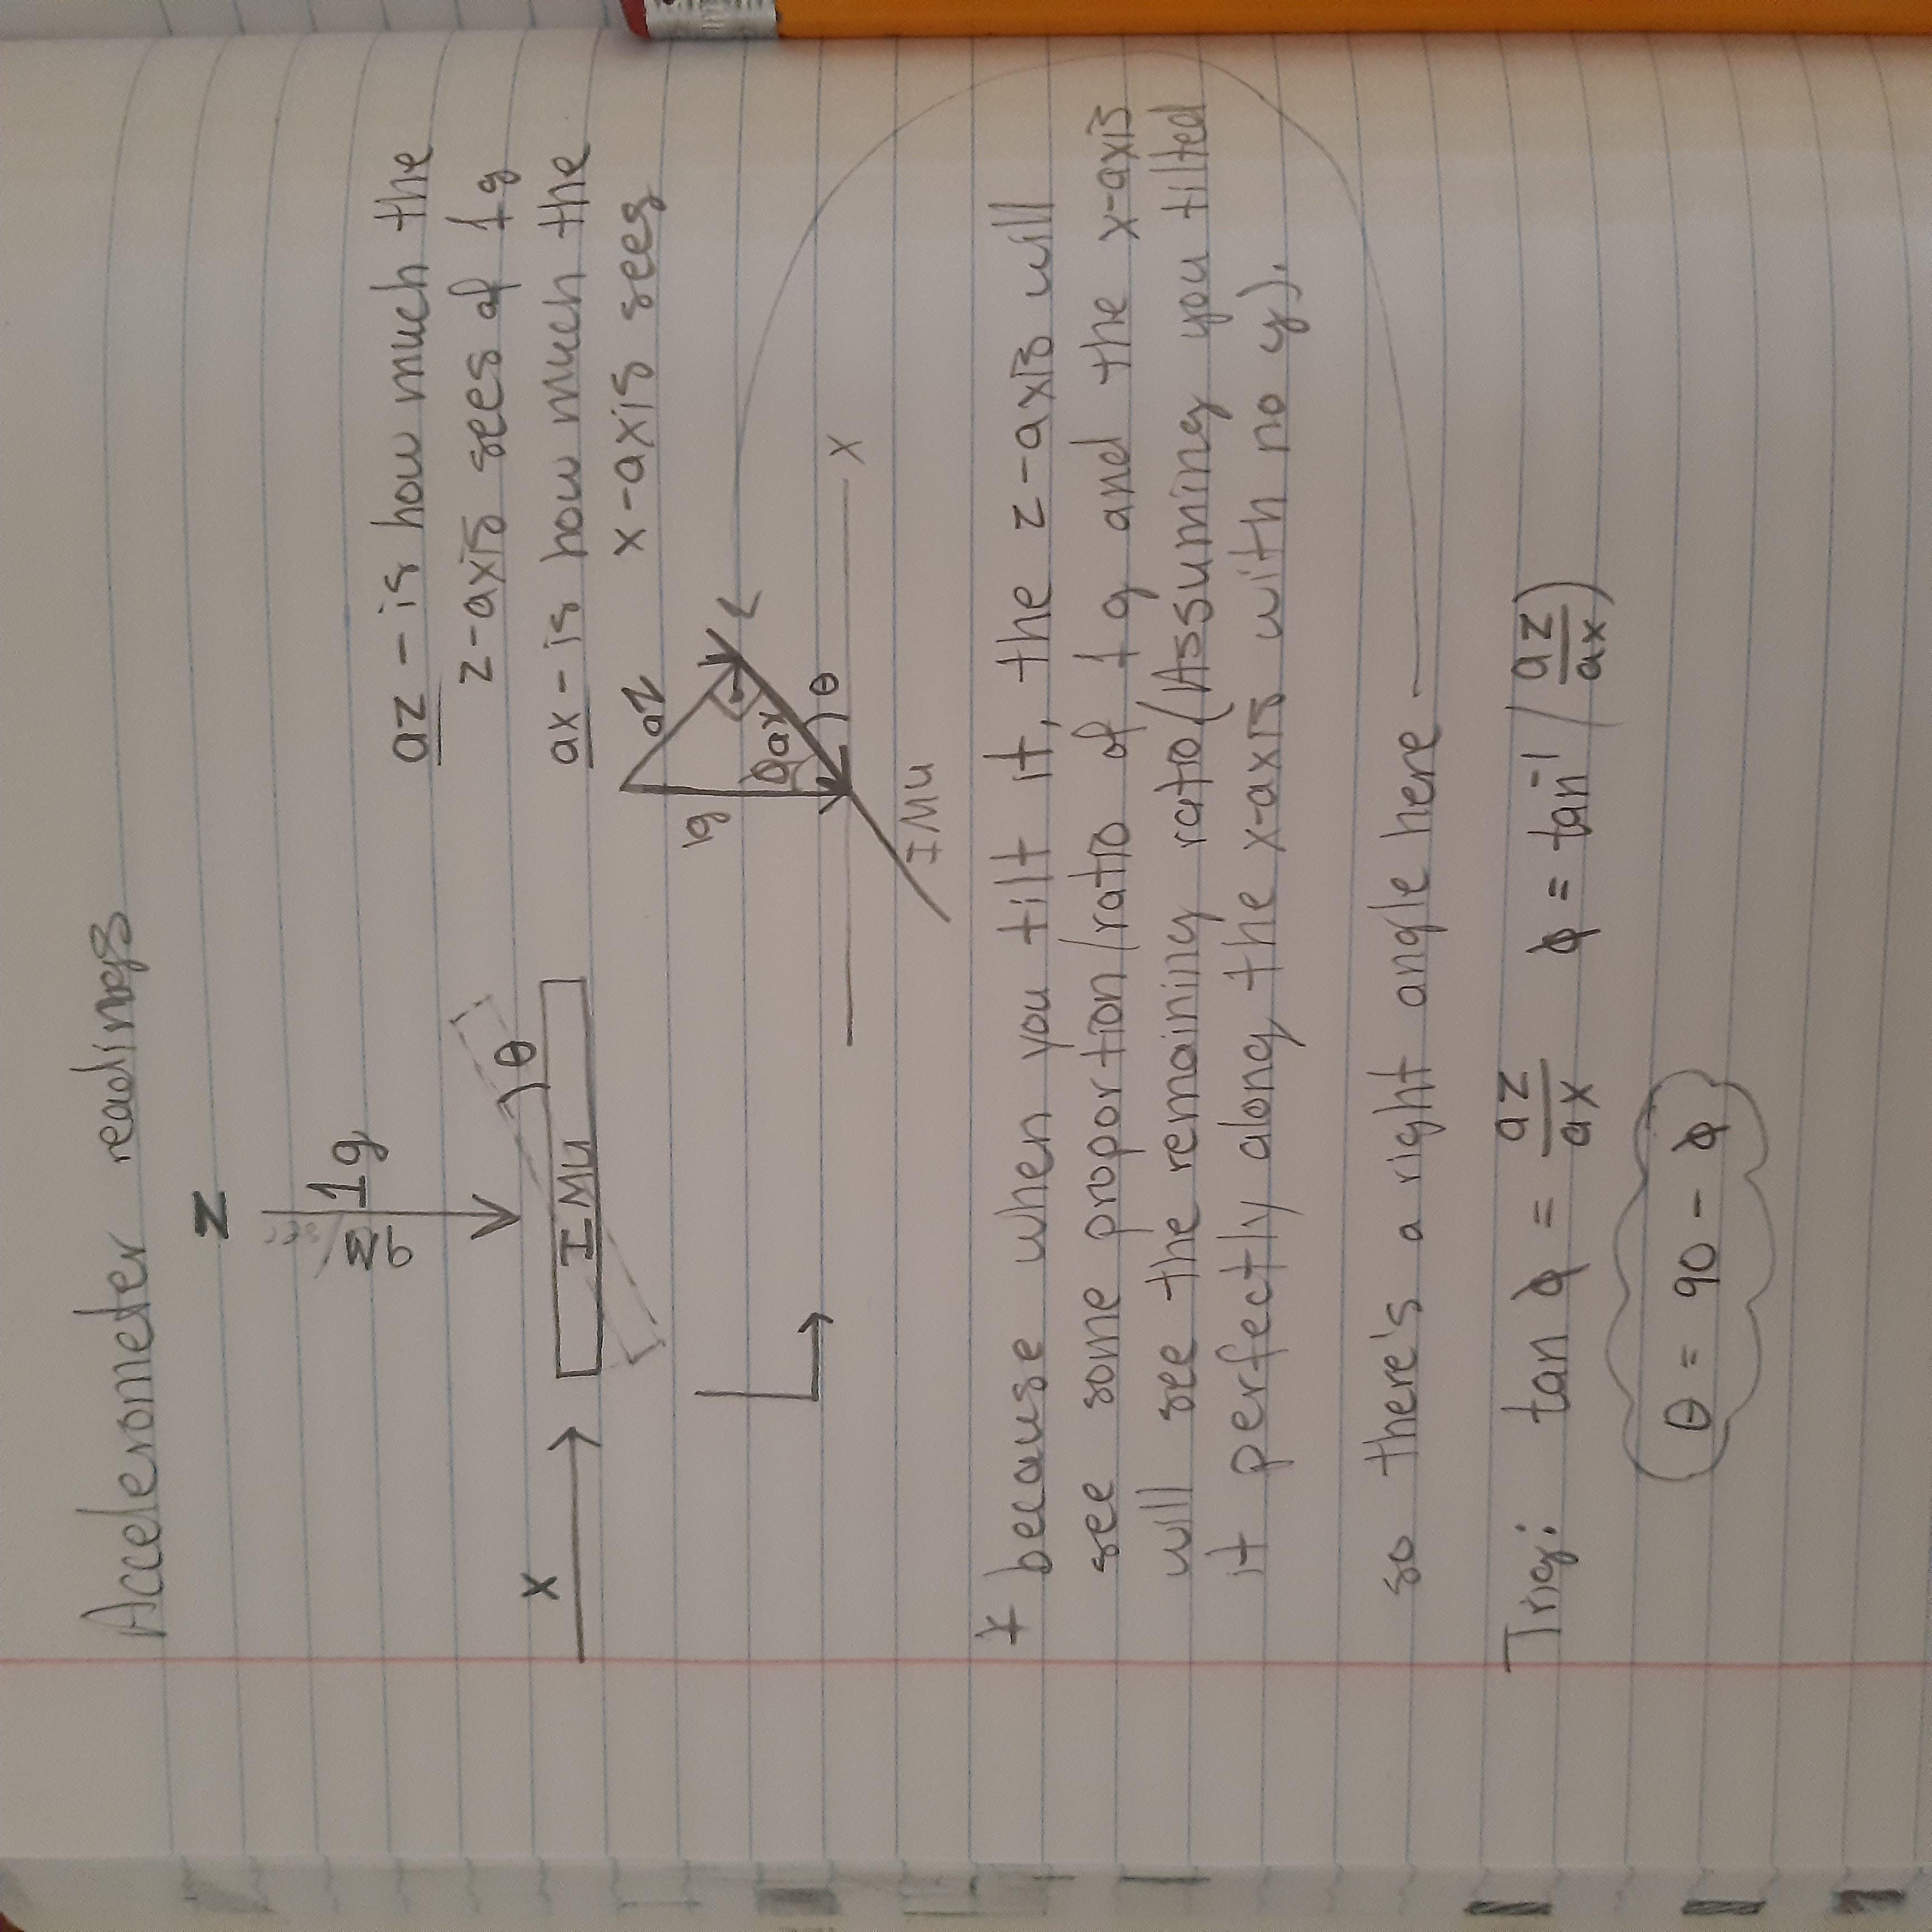 Accelerometer readings
Z
9M/sec
1g
az - is how much the
z-axis sees of 1g
x
θ
IMU
ax - is how much the
x-axis sees
az
1g
ϕ
ax
θ
X
IMU
* because when you tilt it, the z-axis will
see some proportion/ratio of 1g and the x-axis
will see the remaining ratio (Assuming you tilted
it perfectly along the x-axis with no y).
so there's a right angle here
Trig: tan ϕ = az/ax ϕ = tan⁻¹(az/ax)
θ = 90 - ϕ